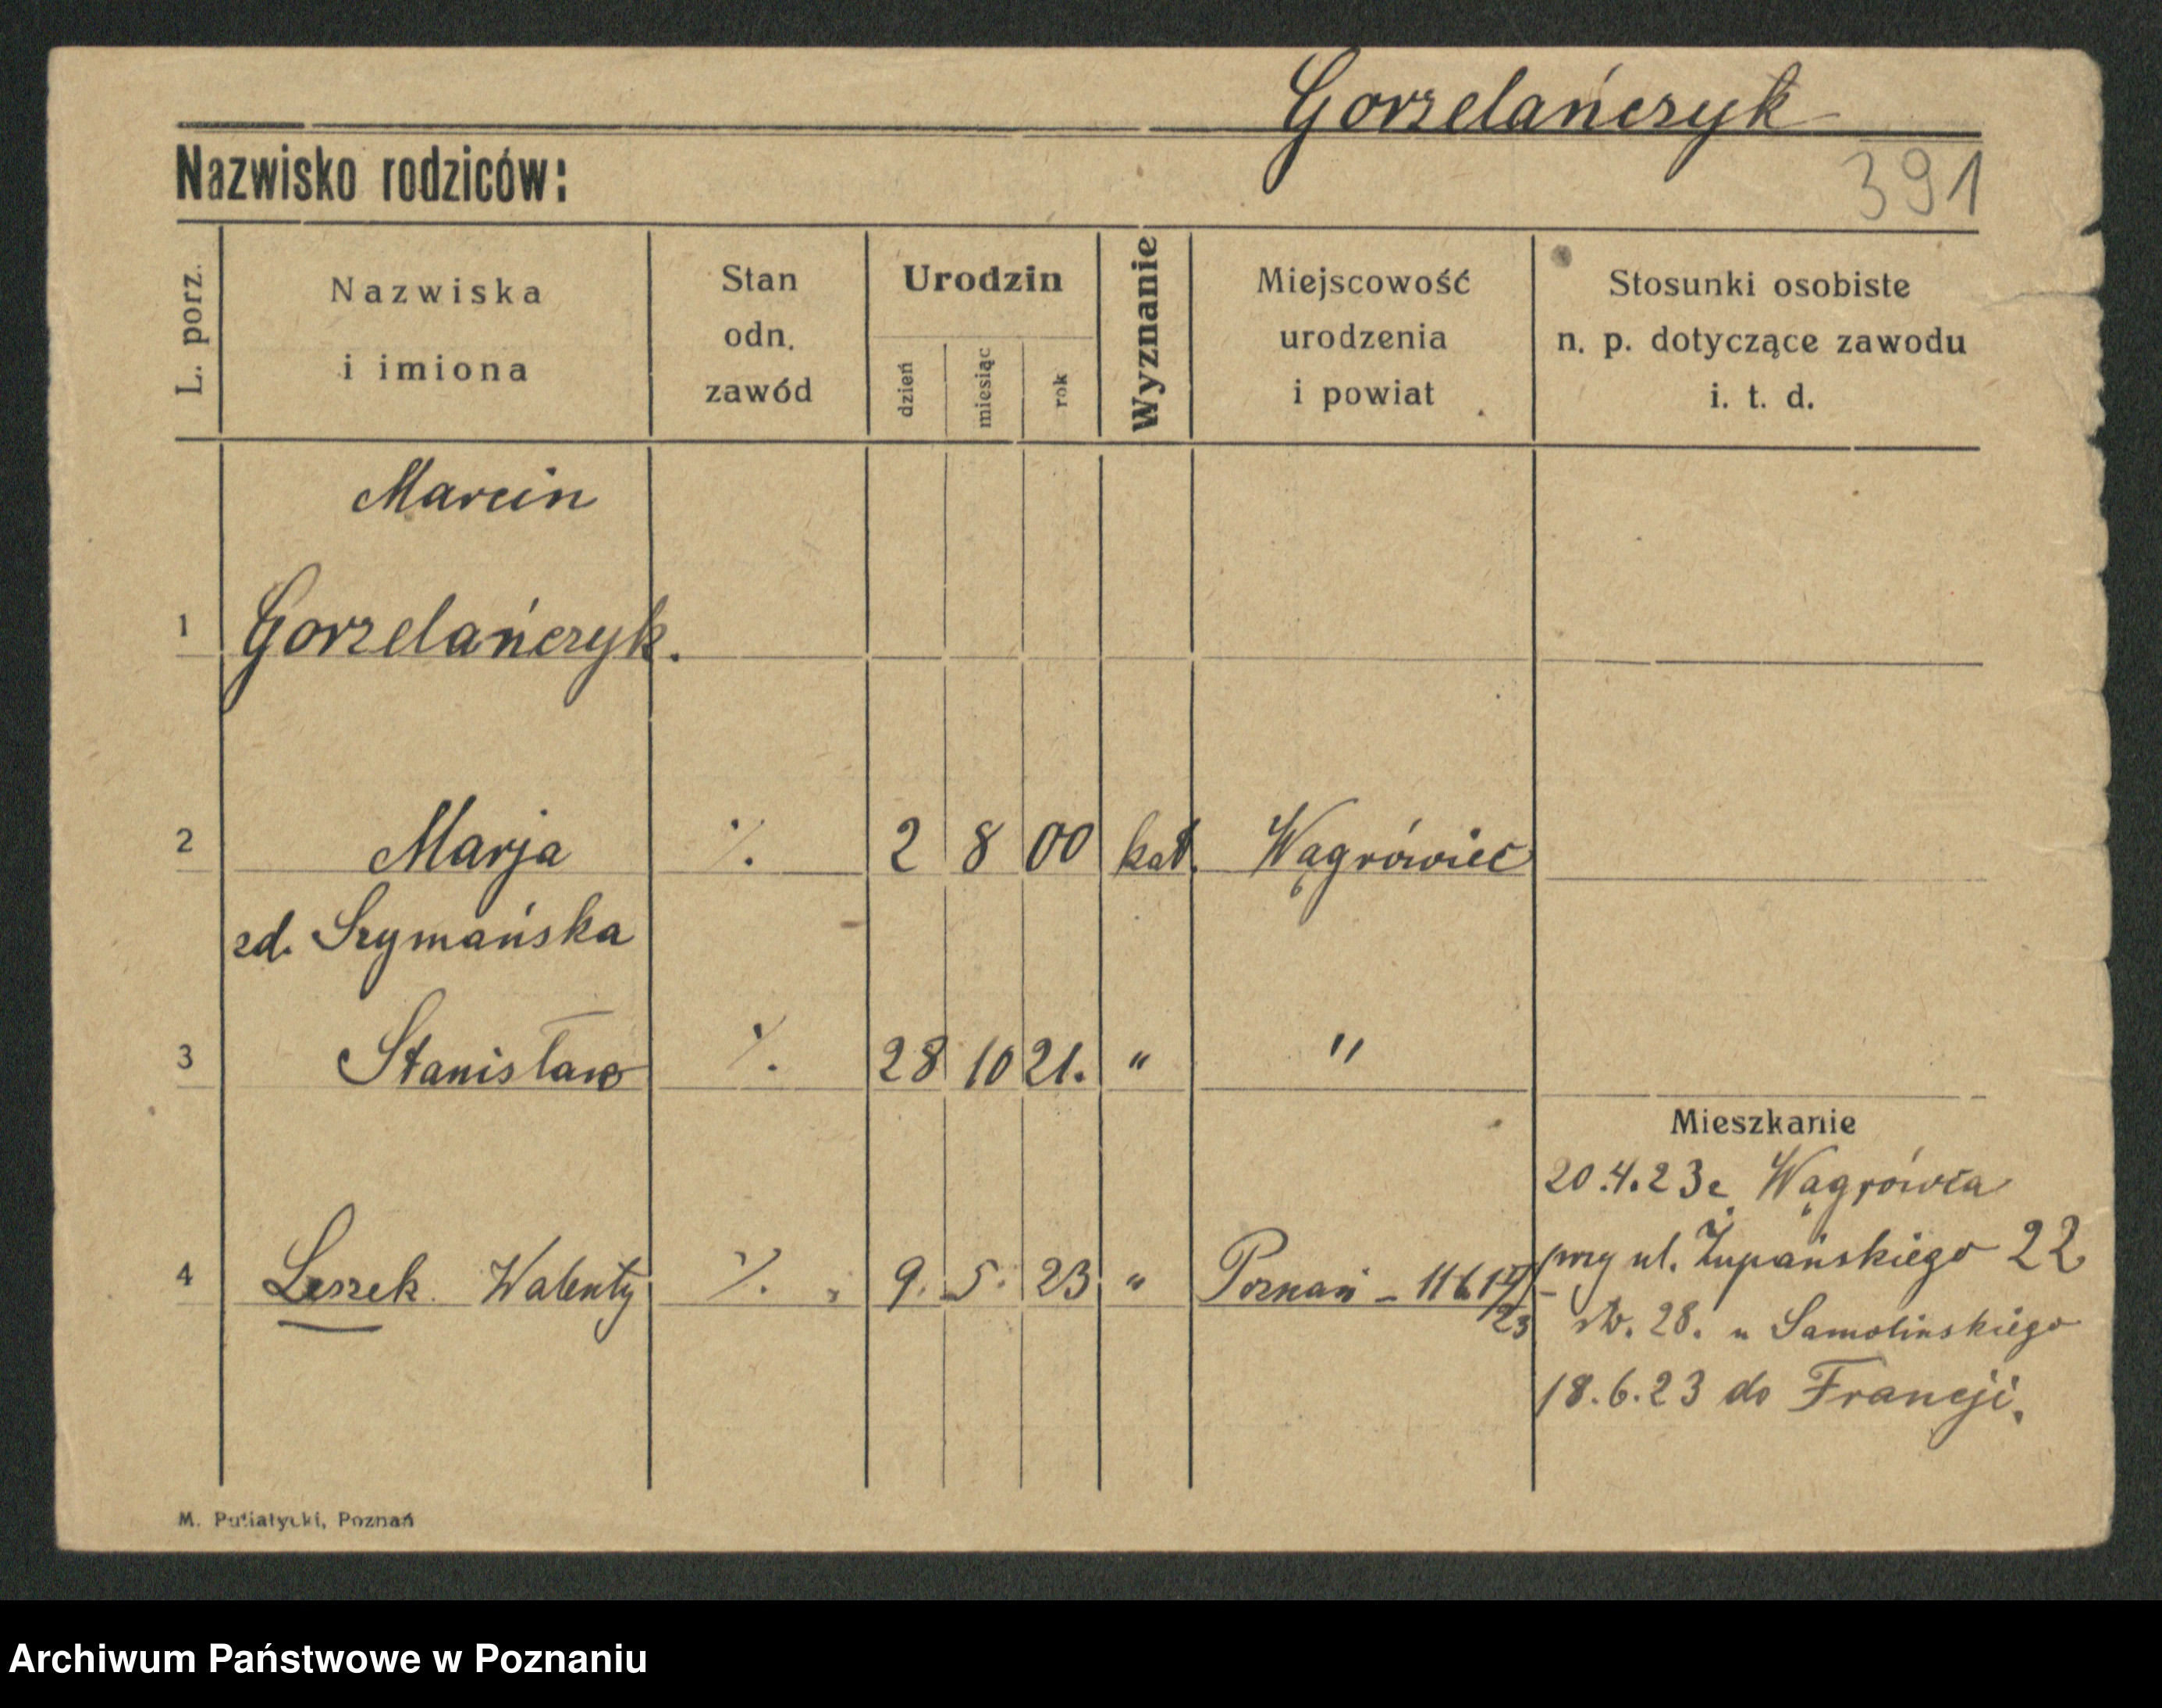 Gorzelańczyk
Nazwisko rodziców:
391
L. porz.
Nazwiska
i imiona
Stan
odn.
zawód
Urodzin
dzień
miesiąc
rok
Wyznanie
Miejscowość
urodzenia
i powiat
Stosunki osobiste
n. p. dotyczące zawodu
i. t. d.
Marcin
1 Gorzelańczyk.
2 Marja ·/. 2 8 00 kat. Wągrówiec
zd. Szymańska
3 Stanisław ·/. 28 10 21. " "
Mieszkanie
20.4.23 z Wągrówca
przy ul. Żupańskiego 22
4 Leszek Walenty ·/. 9. 5. 23 " Poznań –
28. u Samolinskiego
18.6.23 do Francji.
M. Putiatycki, Poznań
Archiwum Państwowe w Poznaniu